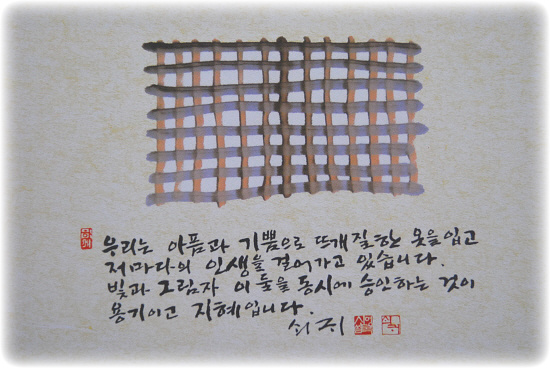 우리는 아픔과 기쁨으로 뜨개질한 옷을 입고
저마다의 인생을 걸어가고 있습니다.
빛과 그림자 이 둘을 동시에 승인하는 것이
용기이고 지혜입니다.